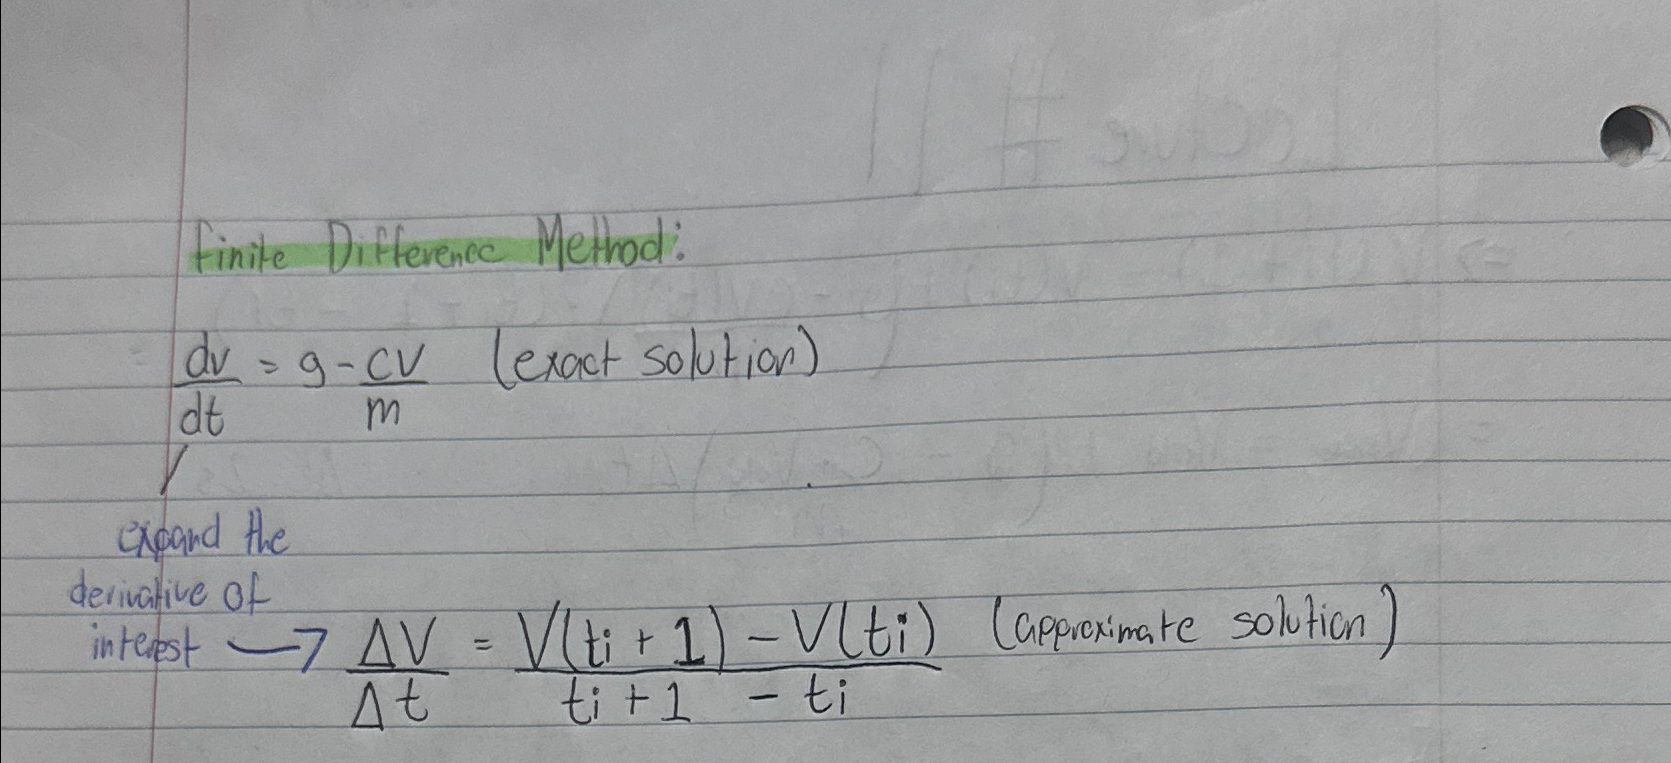 finite Difference Method:
dv/dt = g - cv/m (exact solution)
expand the
derivative of
interest → ΔV/Δt = V(ti + 1) - V(ti)/ti + 1 - ti (approximate solution)